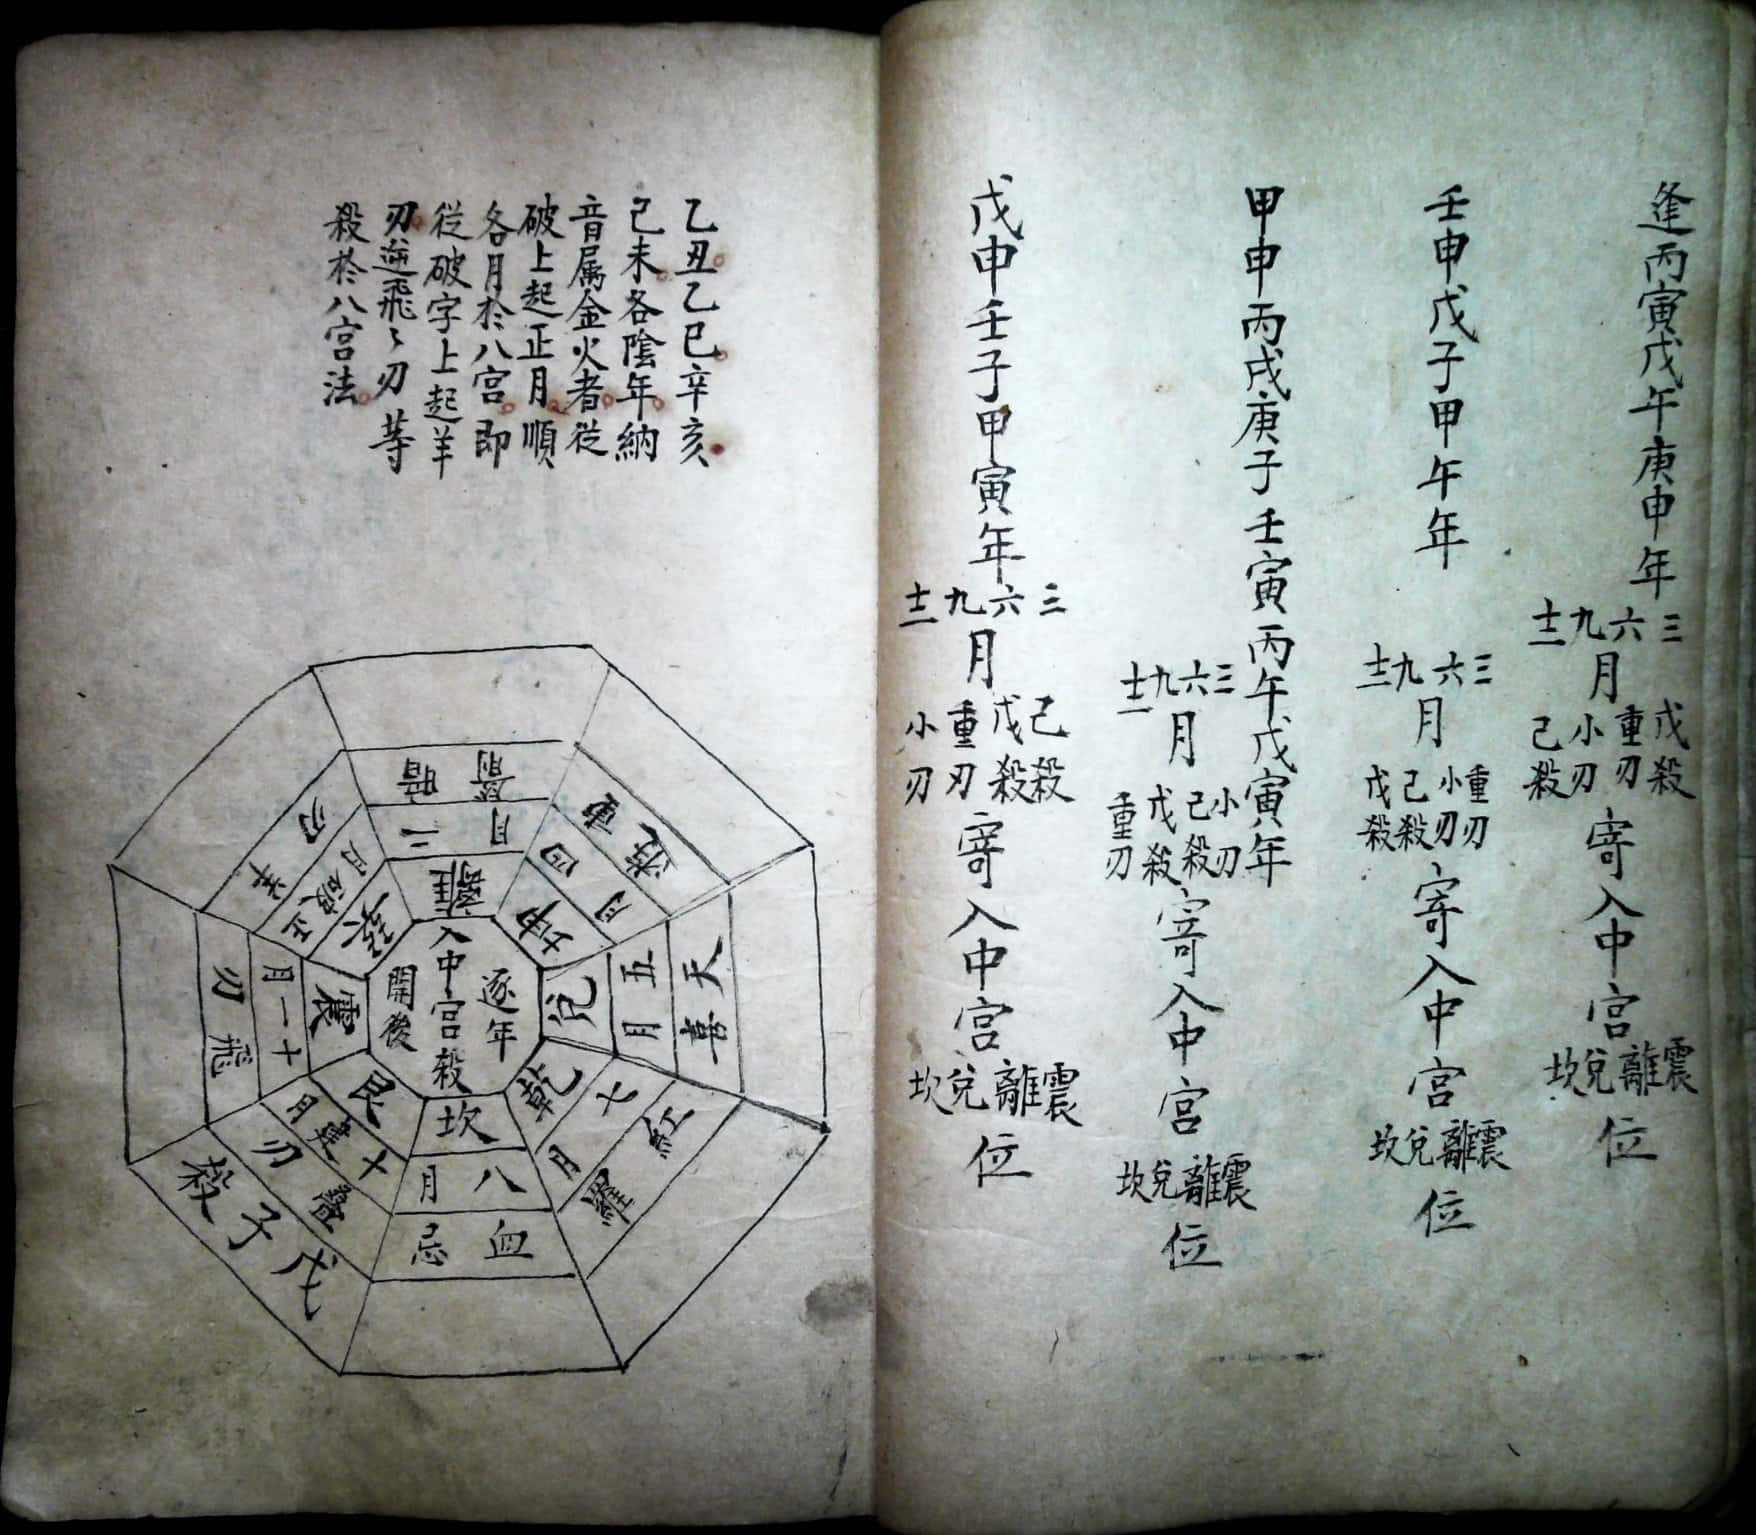 逢丙寅戊午庚申年
三六九十二月
戊殺重刃小刃己殺
寄入中宮
震離兌坎位
壬申戊子甲午年
三六九十二月
重刃小刃己殺戊殺
寄入中宮
震離兌坎位
甲申丙戌庚子壬寅丙午戊寅年
三六九十二月
小刃己殺戊殺重刃
寄入中宮
震離兌坎位
戊申壬子甲寅年
三六九十二月
己殺戊殺重刃小刃
寄入中宮
震離兌坎位
乙丑乙巳辛亥
己未各陰年納
音属金火者從
破上起正月順
各月於八宮即
從破字上起羊
刃逆飛〻刃等
殺於八宮法
逐年
入中宮殺
開後
離
二月
箭暗
坤
四月
遊
兌
五月
天喜
乾
七月
紅羅
坎
八月
血忌
艮
十建月
疊刃
戊子殺
震
十一月
飛刃
巽
正破月
羊刃